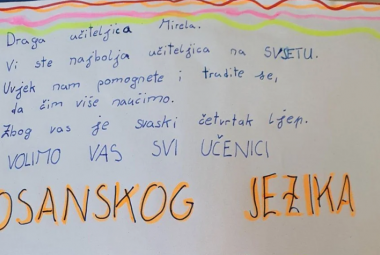 Draga učiteljica Mirela.
Vi ste najbolja učiteljica na SVJETU.
Uvjek nam pomognete i trudite se,
da čim više naučimo.
Zbog vas je svaski četvrtak ljep.
VOLIMO VAS SVI UČENICI
OSANSKOG JEZIKA